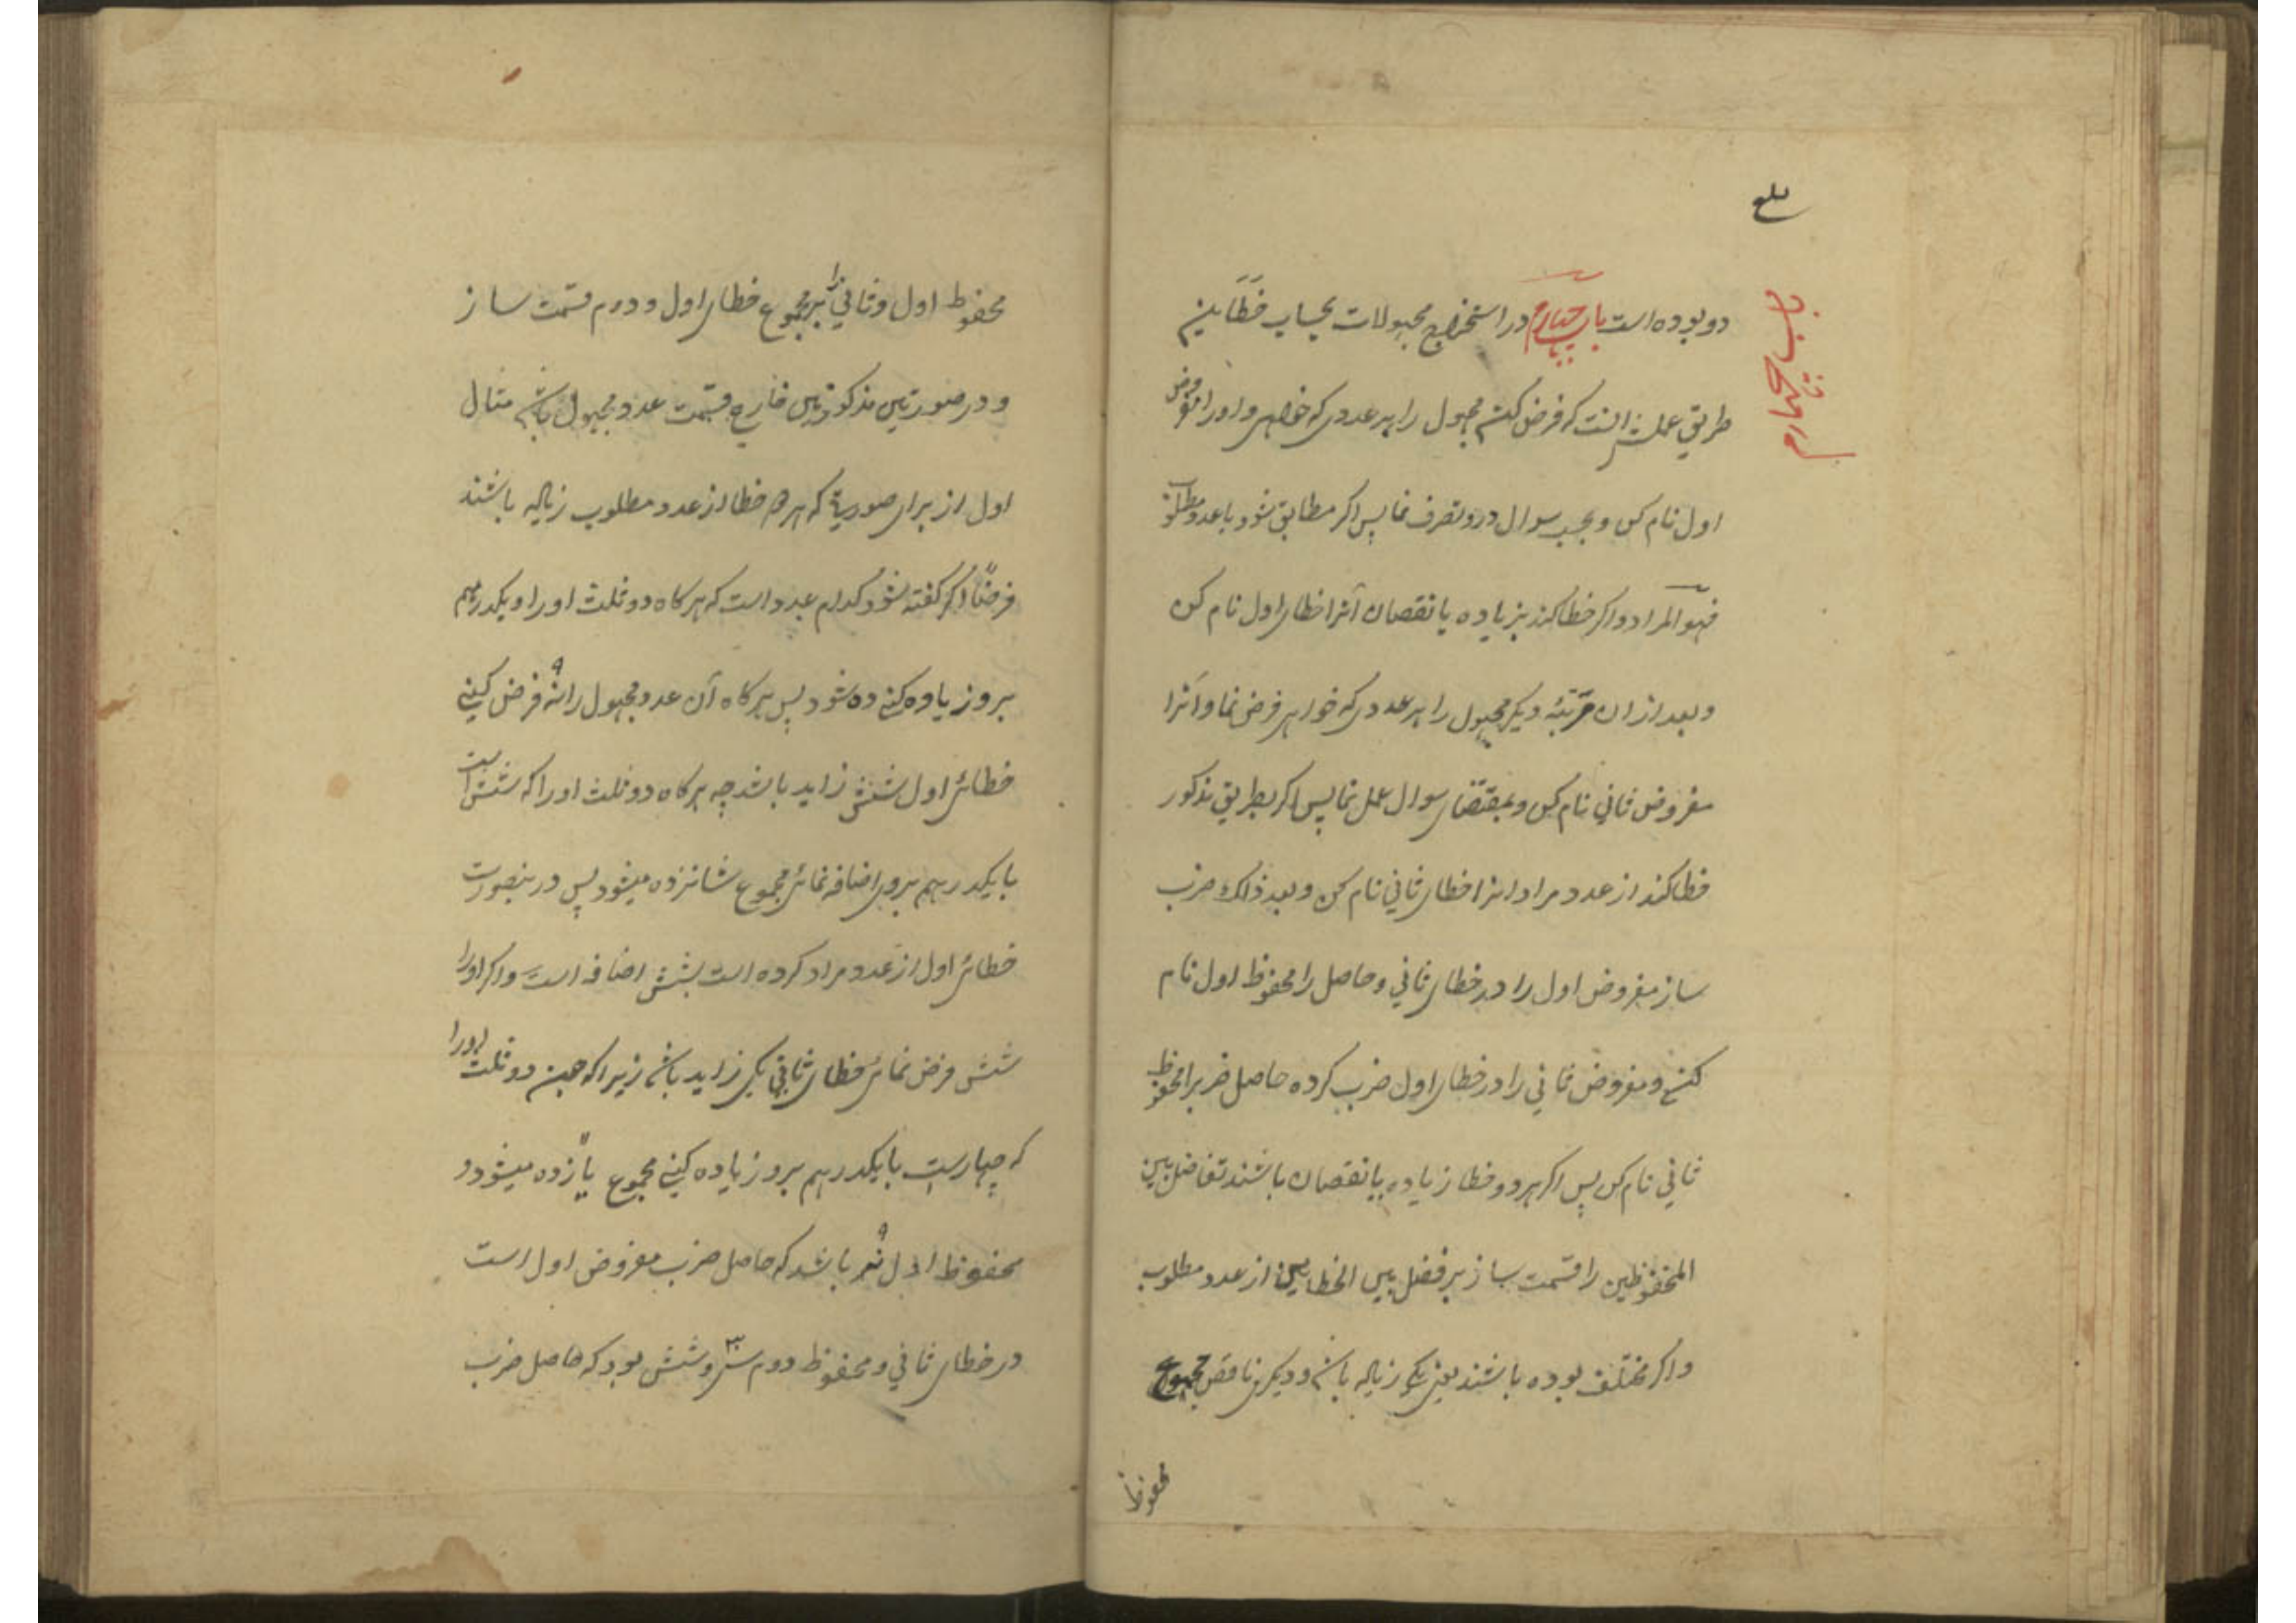 دو بوده است باب چهارم در استخراج مجهولات بحساب خطّایین
طریق عملش انست که فرض کنی مجهول را هر عددی که خواهی و او را مفروض
اول نام کن و بحسب سوال درو تصرف نما پس اگر مطابق شود با عدد مطلوب
فهو المراد و اگر خطا کند بزیاده یا نقصان آنرا خطای اول نام کن
و بعد ازان مرتبهٔ دیگر مجهول را هر عددی که خواهی فرض نما و آنرا
مفروض ثانی نام کن و بمقتضای سوال عمل نما پس اگر بطریق مذکور
خطا کند از عدد مراد انرا خطای ثانی نام کن و بعد ذالک ضرب
ساز مفروض اول را در خطای ثانی و حاصل را محفوظ اول نام
کنی و مفروض ثانی را در خطای اول ضرب کرده حاصل ضرب را محفوظ
ثانی نام کن پس اگر هر دو خطا زیاده یا نقصان باشند تفاضل بین
المحفوظین را قسمت ساز بر فضل بین الخطایین از عدد مطلوب
و اگر مختلف بوده باشند یعنی یکی زیاله باشد و دیگری ناقص مجموع
محفوظ
محفوظ اول و ثانی را بر مجموع خطای اول و دوم قسمت ساز
و در صورتین مذکورتین خارج قسمت عدد مجهول باشد مثال
اول از برای صورتی که هر دو خطا از عدد مطلوب زیاله باشند
فرضاً اگر گفته شود کدام عدد است که هر کاه دو ثلث او را و یکدرهم
برو زیاده کنی ده شود پس هر کاه آن عدد مجهول را نه ۹ فرض کینی
خطائ اول شش زاید باشد چه هر کاه دو ثلث او را که شش است
با یکدرهم بروی اضافه نمائ مجموع شانزده میشود پس درینصورت
خطائ اول از عدد مراد کرده است بشش اضافه است و اگر او را
شش فرض نمائ خطای ثانی یکی زاید باشد زیرا که حین دو ثلث اورا
که چهارست با یکدرهم برو زیاده کینی مجموع یازده میشود و
محفوظ اول نه ۹ باشد که حاصل ضرب مفروض اول است
در خطای ثانی و محفوظ دوم سی و شش بود که حاصل ضرب